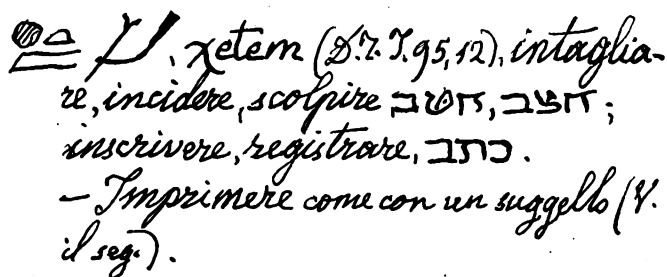 , χetem (D.T. I. 95,12), intaglia-
re, incidere, scolpire חטב, חצב;
inscrivere, registrare, כתב.
— Imprimere come con un suggello (V.
il seg.).